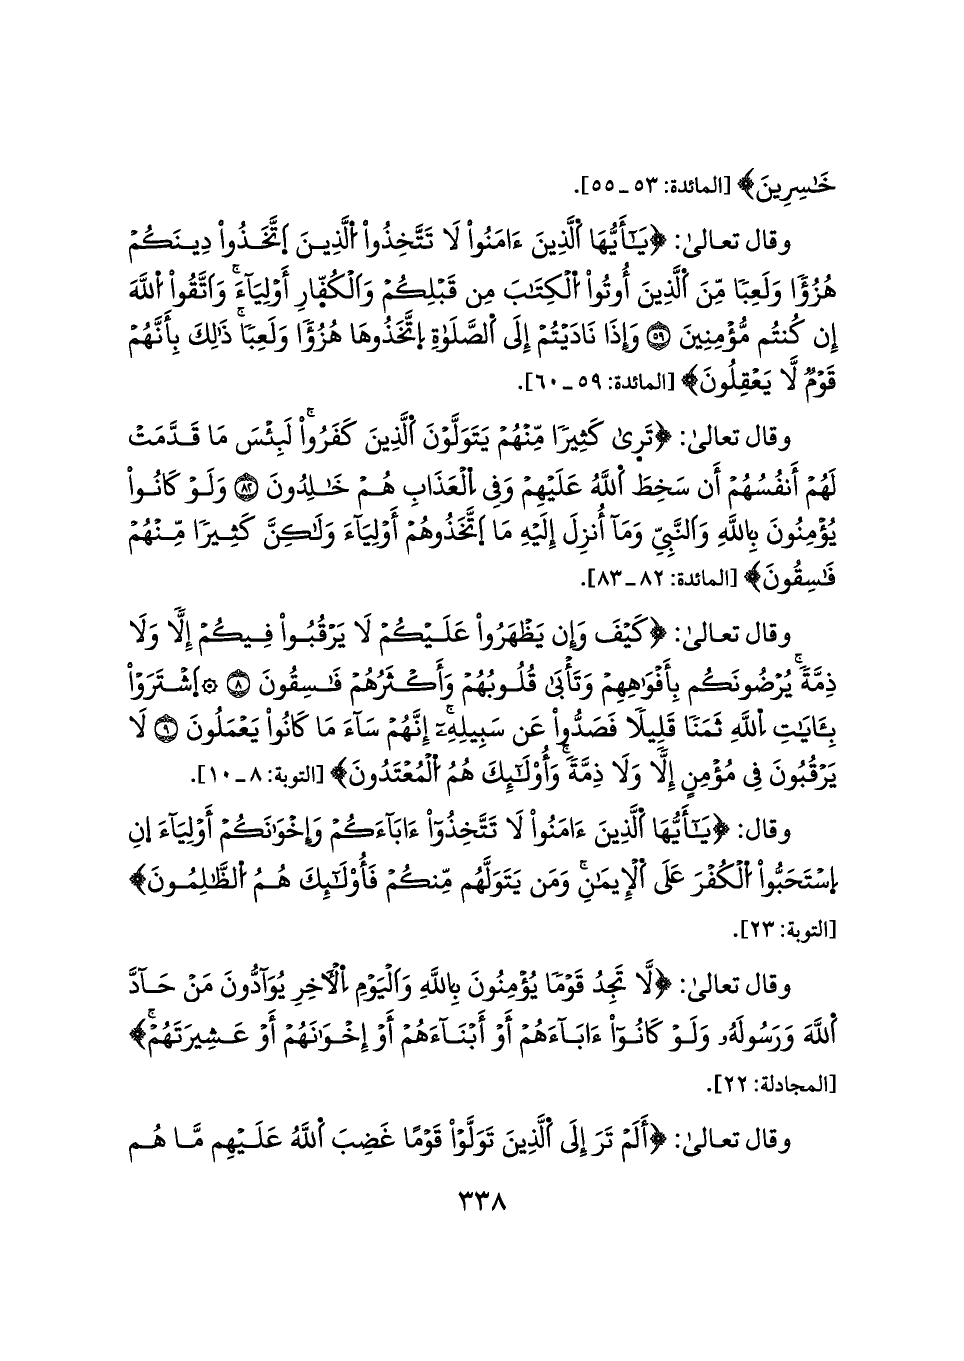 خَٰسِرِينَ﴾ [المائدة: ٥٣ ـ ٥٥].
وقال تعالىٰ: ﴿يَٰٓأَيُّهَا اَ۬لَّذِينَ ءَامَنُواْ لَا تَتَّخِذُواْ اُ۬لَّذِينَ اَ۪تَّخَذُواْ دِينَكُمْ
هُزُؤٗا وَلَعِبٗا مِّنَ اَ۬لَّذِينَ أُوتُواْ اُ۬لْكِتَٰبَ مِن قَبْلِكُمْ وَالْكُفّ۪ارِ أَوْلِيَآءَۚ وَاتَّقُواْ اُ۬للَّهَ
إِن كُنتُم مُّؤْمِنِينَ ۝٥٩ وَإِذَا نَادَيْتُمْ إِلَى اَ۬لصَّلَوٰةِ اِ۪تَّخَذُوهَا هُزُؤٗا وَلَعِبٗاۚ ذَٰلِكَ بِأَنَّهُمْ
قَوْمٞ لَّا يَعْقِلُونَ﴾ [المائدة: ٥٩ ـ ٦٠].
وقال تعالىٰ: ﴿تَر۪ىٰ كَثِيرٗا مِّنْهُمْ يَتَوَلَّوْنَ اَ۬لَّذِينَ كَفَرُواْۚ لَبِئْسَ مَا قَدَّمَتْ
لَهُمْ أَنفُسُهُمْ أَن سَخِطَ اَ۬للَّهُ عَلَيْهِمْ وَفِي اِ۬لْعَذَابِ هُمْ خَٰلِدُونَ ۝٨٢ وَلَوْ كَانُواْ
يُؤْمِنُونَ بِاللَّهِ وَالنَّبِيِّ وَمَآ أُنزِلَ إِلَيْهِ مَا اَ۪تَّخَذُوهُمْ أَوْلِيَآءَ وَلَٰكِنَّ كَثِيرٗا مِّنْهُمْ
فَٰسِقُونَ﴾ [المائدة: ٨٢ ـ ٨٣].
وقال تعالىٰ: ﴿كَيْفَ وَإِن يَظْهَرُواْ عَلَيْكُمْ لَا يَرْقُبُواْ فِيكُمْ إِلّٗا وَلَا
ذِمَّةٗۚ يُرْضُونَكُم بِأَفْوَٰهِهِمْ وَتَأْبَىٰ قُلُوبُهُمْ وَأَكْثَرُهُمْ فَٰسِقُونَ ۝٨ ۞ اَ۪شْتَرَوْاْ
بِـَٔايَٰتِ اِ۬للَّهِ ثَمَنٗا قَلِيلٗا فَصَدُّواْ عَن سَبِيلِهِۦٓۚ إِنَّهُمْ سَآءَ مَا كَانُواْ يَعْمَلُونَ ۝٩ لَا
يَرْقُبُونَ فِي مُؤْمِنٍ إِلّٗا وَلَا ذِمَّةٗۚ وَأُوْلَٰٓئِكَ هُمُ اُ۬لْمُعْتَدُونَ﴾ [التوبة: ٨ ـ ١٠].
وقال: ﴿يَٰٓأَيُّهَا اَ۬لَّذِينَ ءَامَنُواْ لَا تَتَّخِذُوٓاْ ءَابَآءَكُمْ وَإِخْوَٰنَكُمْ أَوْلِيَآءَ اِنِ
اِ۪سْتَحَبُّواْ اُ۬لْكُفْرَ عَلَى اَ۬لْإِيمَٰنِۚ وَمَن يَتَوَلَّهُم مِّنكُمْ فَأُوْلَٰٓئِكَ هُمُ اُ۬لظَّٰلِمُونَ﴾
[التوبة: ٢٣].
وقال تعالىٰ: ﴿لَّا تَجِدُ قَوْمٗا يُؤْمِنُونَ بِاللَّهِ وَالْيَوْمِ اِ۬لْأٓخِرِ يُوَآدُّونَ مَنْ حَآدَّ
اَ۬للَّهَ وَرَسُولَهُۥ وَلَوْ كَانُوٓاْ ءَابَآءَهُمْ أَوْ أَبْنَآءَهُمْ أَوْ إِخْوَٰنَهُمْ أَوْ عَشِيرَتَهُمْۚ﴾
[المجادلة: ٢٢].
وقال تعالىٰ: ﴿أَلَمْ تَرَ إِلَى اَ۬لَّذِينَ تَوَلَّوْاْ قَوْمًا غَضِبَ اَ۬للَّهُ عَلَيْهِم مَّا هُم
٣٣٨